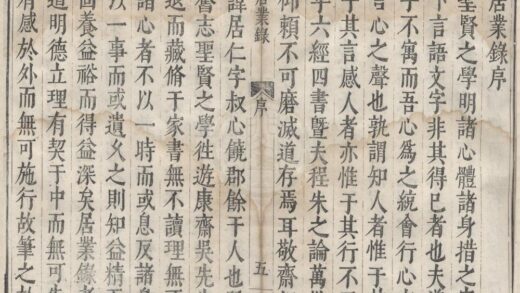 居業錄序
聖賢之學明諸心體諸身措之
下言語文字非其得已者也夫
子不寓而吾心爲之統會行心
言心之聲也孰謂知人者惟于
于其言感人者亦惟于其行不
字六經四書暨夫程朱之論萬
仰頼不可磨滅道存焉耳敬齋
居業錄 序 五
諱居仁字叔心饒郡餘干人也
嘗志聖賢之學徃遊康齋吳先
退而藏脩于家書無不讀理無
諸心者不以一時而或息反諸身
以一事而或遺乆之則知益精
養益裕而得益深矣居業錄
道明德立理有契于中而無可
有感於外而無可施行故筆之